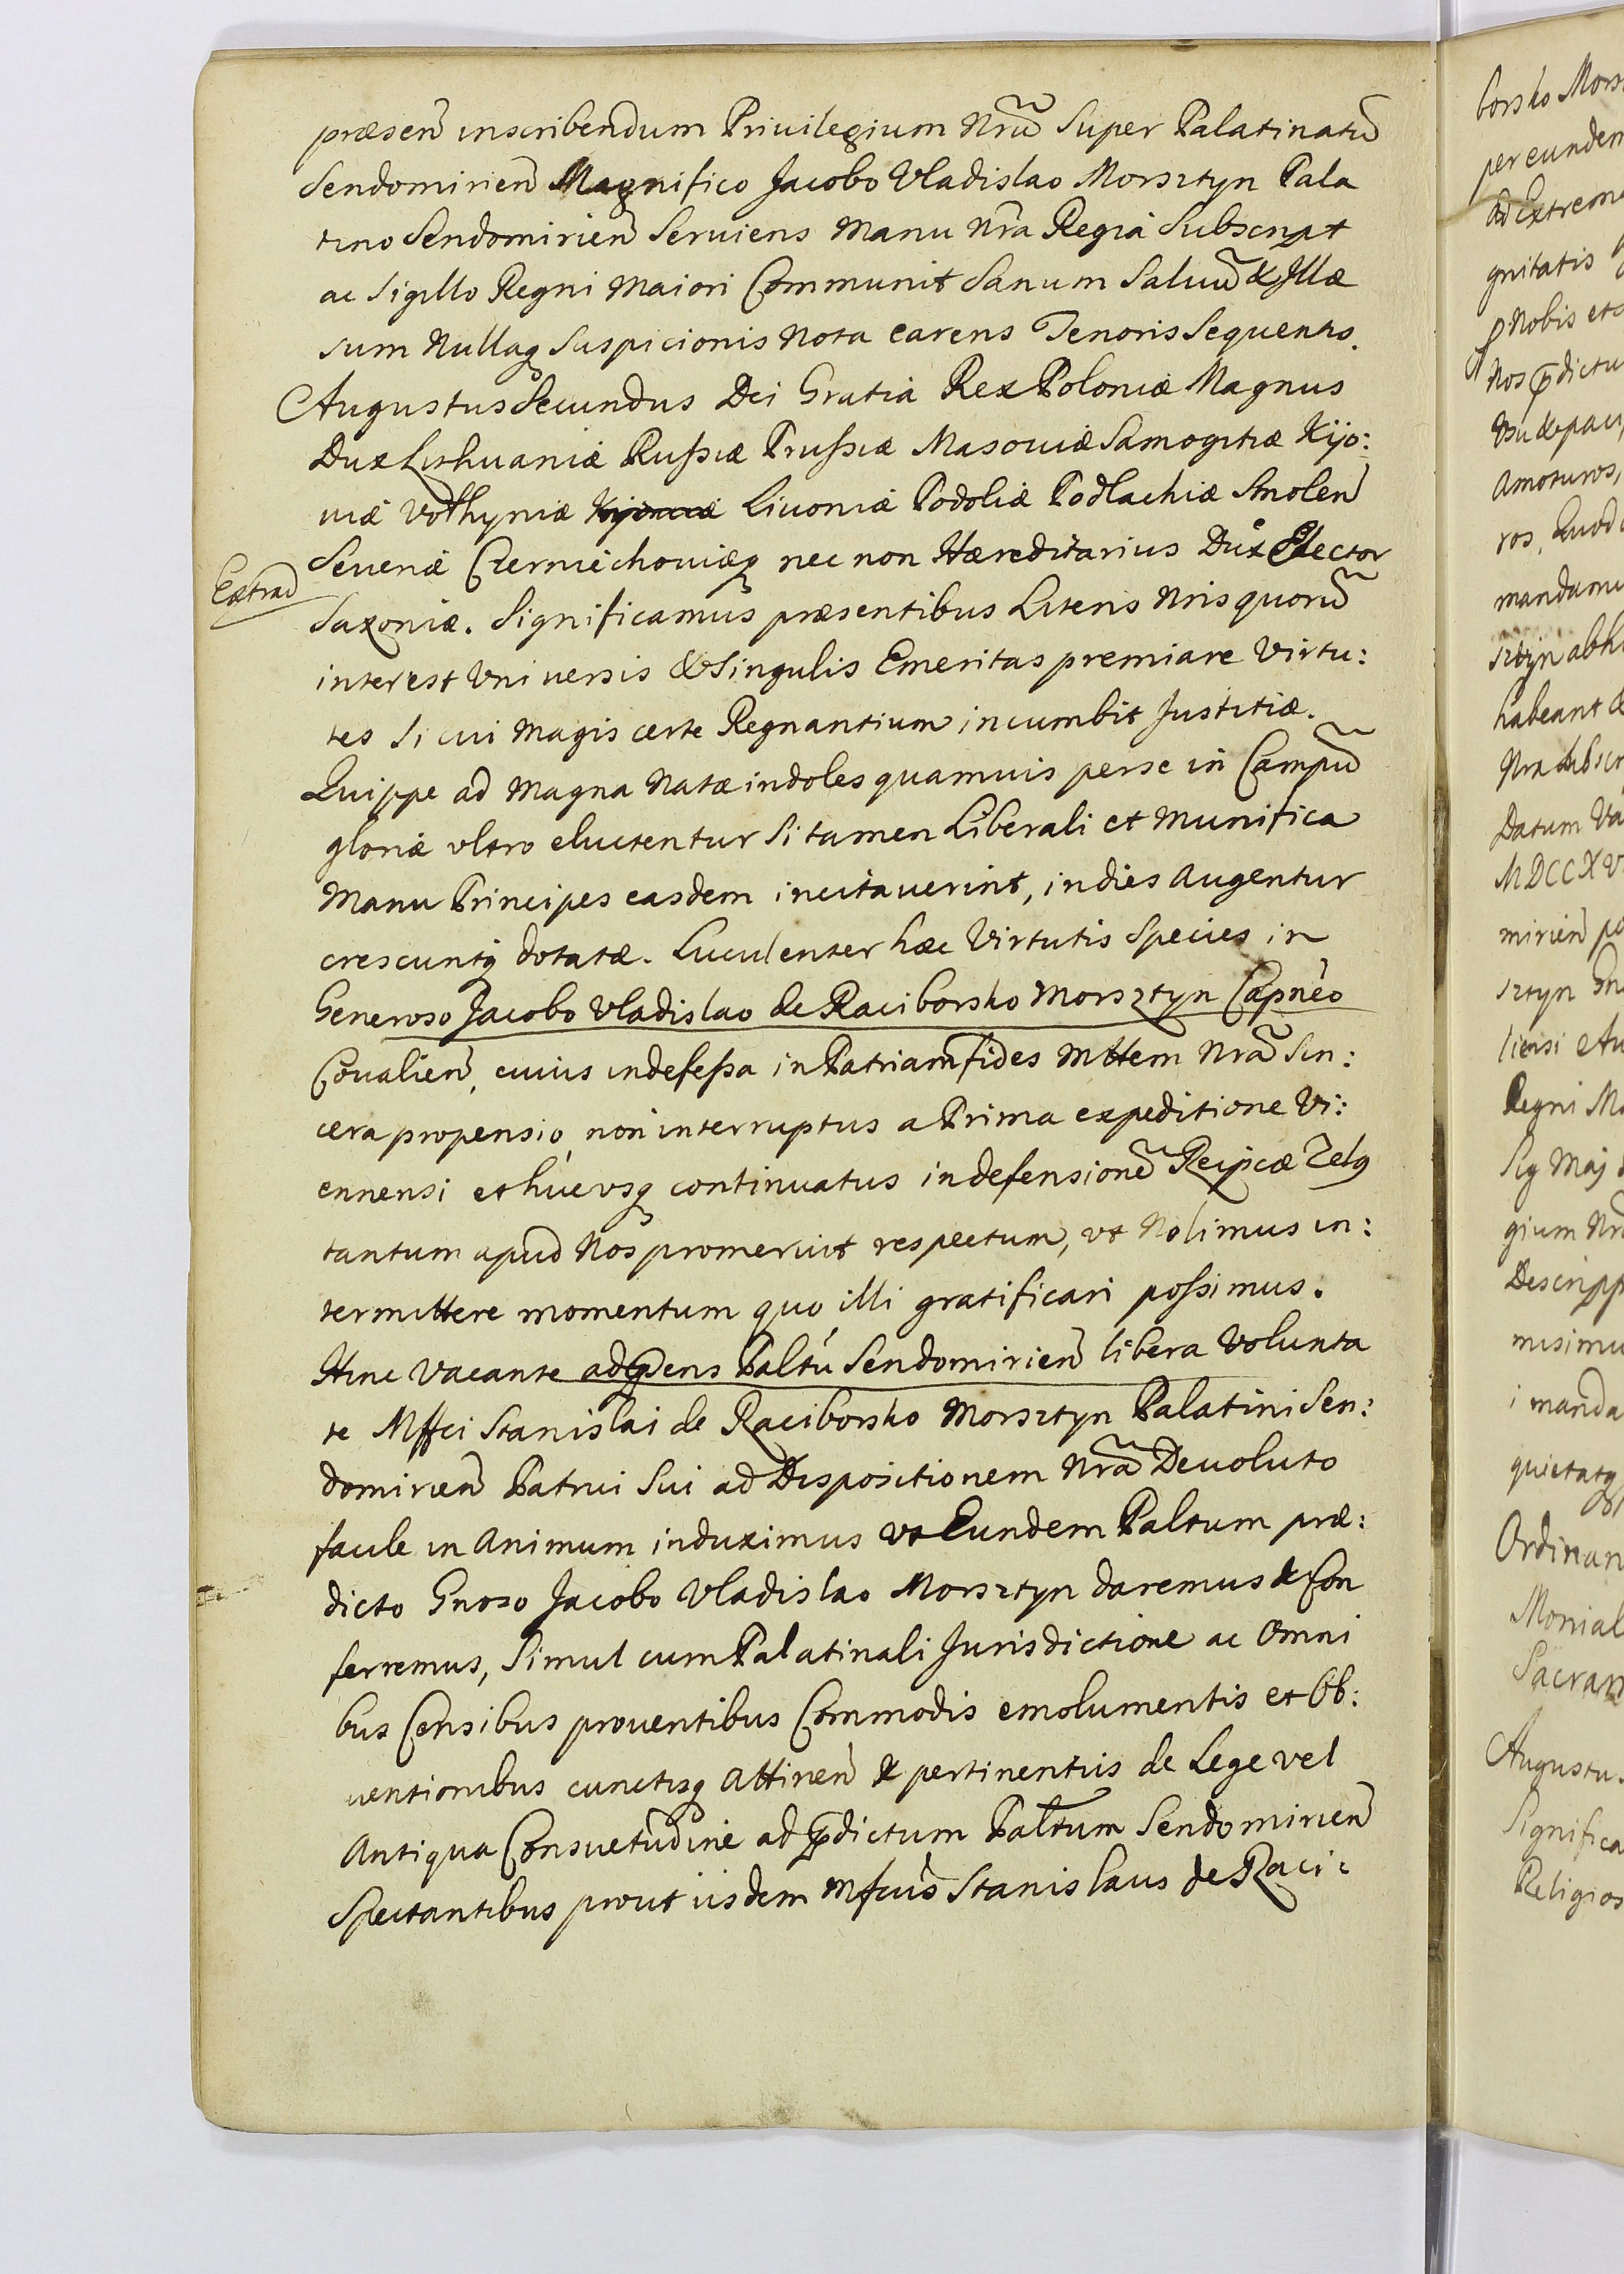 præsen̄ inscribendum Priuilegium Nrũ Super Palatinatũ
Sendomirien̄ Magnifico Jacobo Vladislao Morsztyn Pala
tino Sendomirien̄ Seruiens Manu Nrã Regia Subscript
ac Sigillo Regni Maiori Communit Sanum Saluũ & Illæ
sum Nullaq Suspicionis Nota carens Tenoris Sequentis.
Augustus Secundus Dei Gratia Rex Poloniæ Magnus
Dux Lithuaniæ Russiæ Prussiæ Masouiæ Samogitiæ Kijo:
uiæ Volhyniæ Kijouiæ Liuoniæ Podoliæ Podlachiæ Smolen̄
Extrad
Seueriæ Czerniechouiæq nec non Hæreditarius Dux Elector
Saxoniæ. Significamus præsentibus Literis Nris quorũ
interest Vniuersis & Singulis Emeritas premiare Virtu:
tes Si cui Magis certe Regnantium incumbit Justitiæ.
Quippe ad Magna Natæ indoles quamuis perse in Campũ
gloriæ vltro eluctentur Si tamen Liberali et Munifica
Manu Principes easdem incitauerint, indies Augentur
crescuntq dotatæ. Luculenter hæc Virtutis Species in
Generoso Jacobo Vladislao de Raciborsko Morsztyn Capnèo
Coualien̄, cuius indefessa in Patriam fides Mttem Nrã Sin:
cera propensio non interruptus a Prima expeditione Vi:
ennensi et hucvsq continuatus in defensionẽ Reipcæ Zelq
tantum apud Nos promeruit respectum, vt Nolimus in:
termittere momentum quo illi gratificari possimus.
Hinc Vacante ad p̄sens Paltũ Sendomirien̄ libera Volunta
te Mffci Stanislai de Raciborsko Morsztyn Palatini Sen:
domirien̄ Patrui Sui ad Dispositionem Nrã Deuoluto
facile in Animum induximus vt Eundem Paltum præ:
dicto Gnoso Jacobo Vladislao Morsztyn daremus & Con
ferremus, Simul cum Palatinali Jurisdictione ac Omni
bus Censibus prouentibus Commodis emolumentis et Ob:
uentionibus cunctisq Attinen̄ & pertinentiis de Lege vel
Antiqua Consuetudine ad p̄dictum Paltum Sendomirien̄
Spectantibus prout iisdem Mfcus Stanislaus de Raci:
borsko Mors
per eundem
ad Extreme
gnitatis
p Nobis et
Nos p̄dictu
amoturos,
ros, Quod
mandamu
sztyn abh
habeant &
Nra Subscr
Datum Va
MDCCXV
mirien̄ po
sztyn Gn
liensi Au
Regni Ma
Sig Maj
gium Nr
Descripp
misimu
i manda
quietatq
Ordinan
Monial
Sacram
Augustu
Significa
Religios